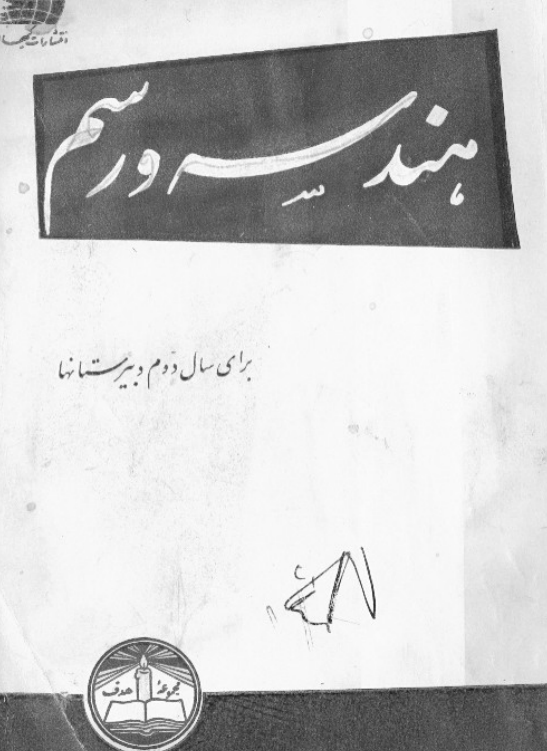 انتشارات کیهان
هندسه و رسم
برای سال دوم دبیرستانها
مجموعهٔ هدف